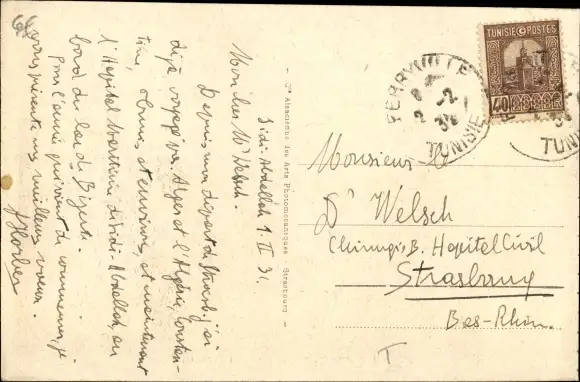 Sidi-Abdallah 9. II 31.
Mon cher Mr Welsch.
Depuis mon départ de Strasb. j'ai
déjà voyagé, vu Alger et l'Algérie, Constan-
tine, Tunis et environs, et maintenant
l'Hôpital Maritime de Sidi-Abdallah, au
bord du lac de Bizerte.
Pour l'année qui vient de commencer, je
vous présente mes meilleurs voeux.
Cie Alsacienne des Arts Photomécaniques - Strasbourg
TUNISIE POSTES
40
FERRYVILLE
TUNISIE
TUNI
Monsieur le
Dr Welsch
Chirurgie B. Hopital Civil
Strasbourg
Bas-Rhin.
T